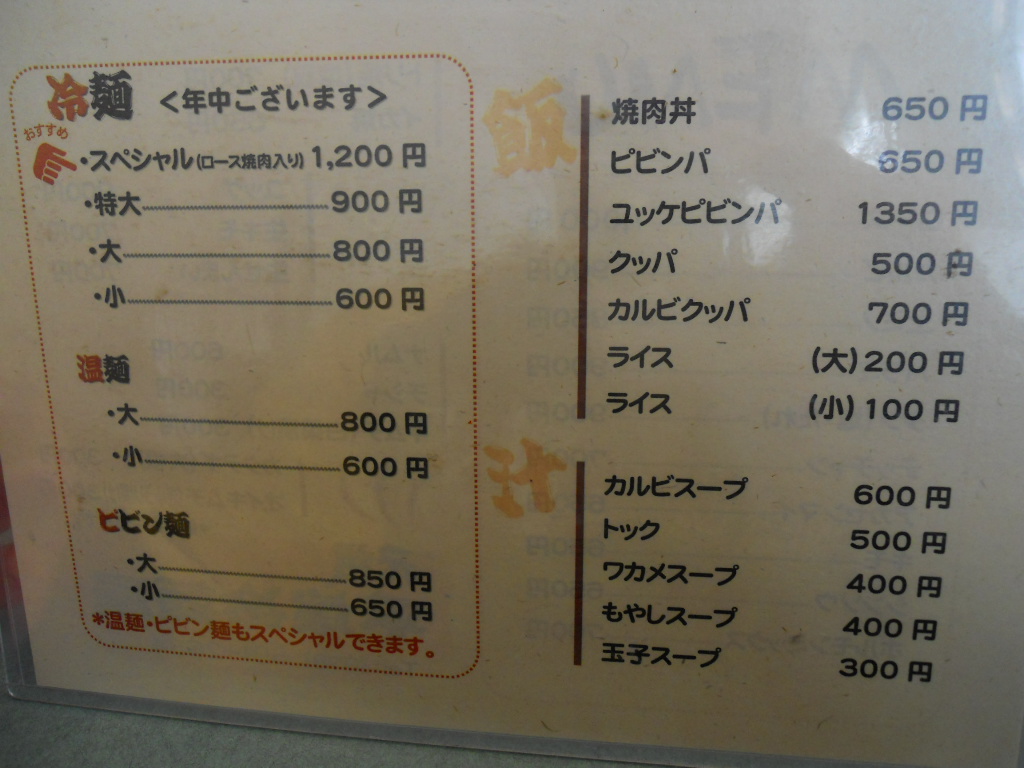 冷麺 <年中ございます>
おすすめ
・スペシャル(ロース焼肉入り) 1,200 円
・特大 900 円
・大 800 円
・小 600 円
温麺
・大 800 円
・小 600 円
ピビン麺
・大 850 円
・小 650 円
*温麺・ピビン麺もスペシャルできます。
飯
焼肉丼 650 円
ピビンパ 650 円
ユッケピビンパ 1350 円
クッパ 500 円
カルビクッパ 700 円
ライス (大) 200 円
ライス (小) 100 円
汁
カルビスープ 600 円
トック 500 円
ワカメスープ 400 円
もやしスープ 400 円
玉子スープ 300 円